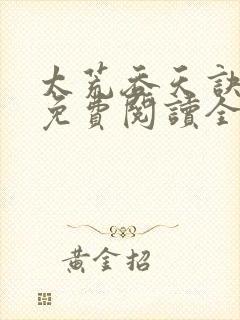 太荒吞天訣
免費閱讀全
黃金招